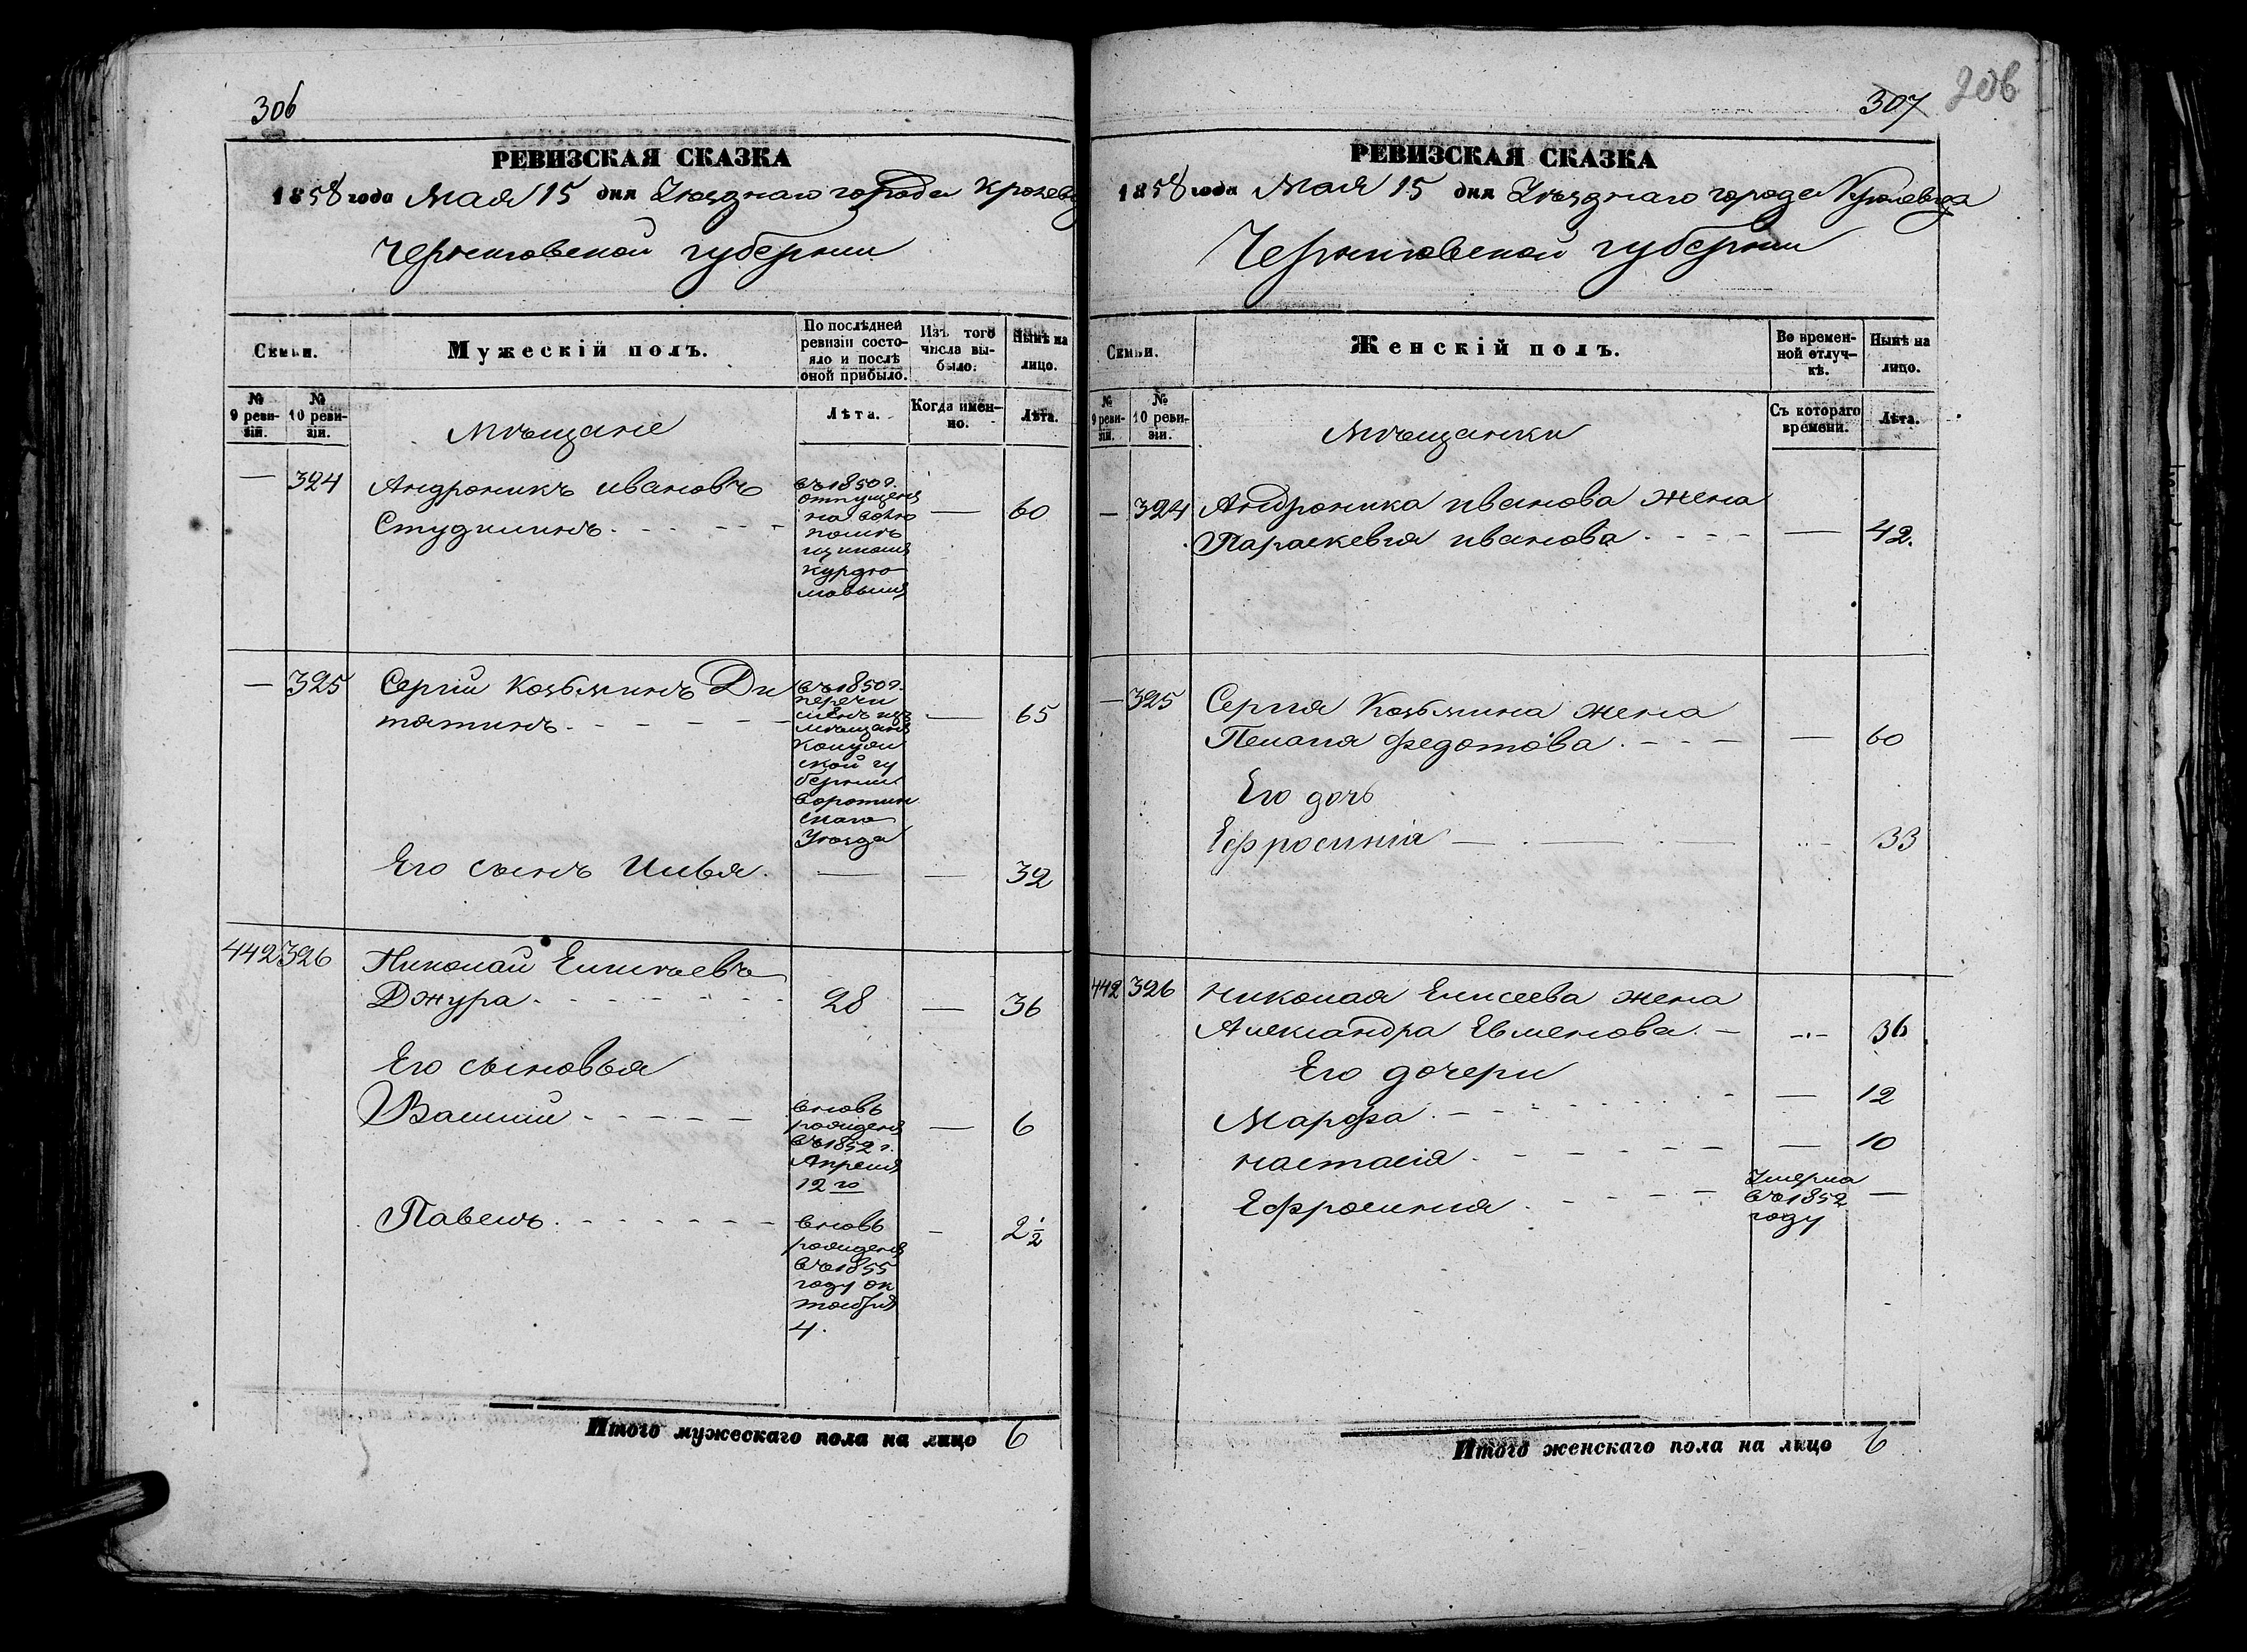 306
РЕВИЗСКАЯ СКАЗКА
1858 года Мая 15 дня Уѣзднаго города Кролевц
Черниговской губерніи
Семьи.
Мужескій полъ.
По послѣдней ревизіи состояло и послѣ оной прибыло.
Изъ того числа выбыло.
Нынѣ на лицо.
№ 9 ревизіи.
№ 10 ревизіи.
Мѣщане
Лѣта.
Когда именно.
Лѣта.
— 324 Андроникъ Ивановъ
Студилинъ — 60
въ 1850 г.
отпущенъ
на волю
помѣ
щикомъ
Курдю
мовымъ
— 325 Сергій Козьминъ Ди
тятинъ — 65
въ 1850 г.
перечи
сленъ изъ
мѣщанъ
Калуж
ской гу
берніи
Воротын
скаго
Уѣзда
Его сынъ Илья — — 32
442 326 Николай Елисѣевъ
Джура 28 — 36
Его сыновья
Василій — 6
вновь
рожденъ
въ 1852 г.
Апреля
12 го
Павелъ — 2 1/2
вновь
рожденъ
въ 1855
году ок
тября
4.
Итого мужескаго пола на лицо 6
307
206
РЕВИЗСКАЯ СКАЗКА
1858 года Мая 15 дня Уѣзднаго города Кролевца
Черниговской губерніи
Семьи.
Женскій полъ.
Во временной отлучкѣ.
Нынѣ на лицо.
№ 9 ревизіи.
№ 10 ревизіи.
Мѣщанки
Съ котораго времени.
Лѣта.
— 324 Андроника Иванова жена
Параскевія Иванова — 42.
— 325 Сергія Козьмина жена
Пелагія Федотова — 60
Его дочь
Ефросинія — 33
442 326 Николая Елисеева жена
Александра Евменова — 36
Его дочери
Марфа — 12
Настасія — 10
Ефросинія —
Умерла
въ 1852
году
Итого женскаго пола на лицо 6